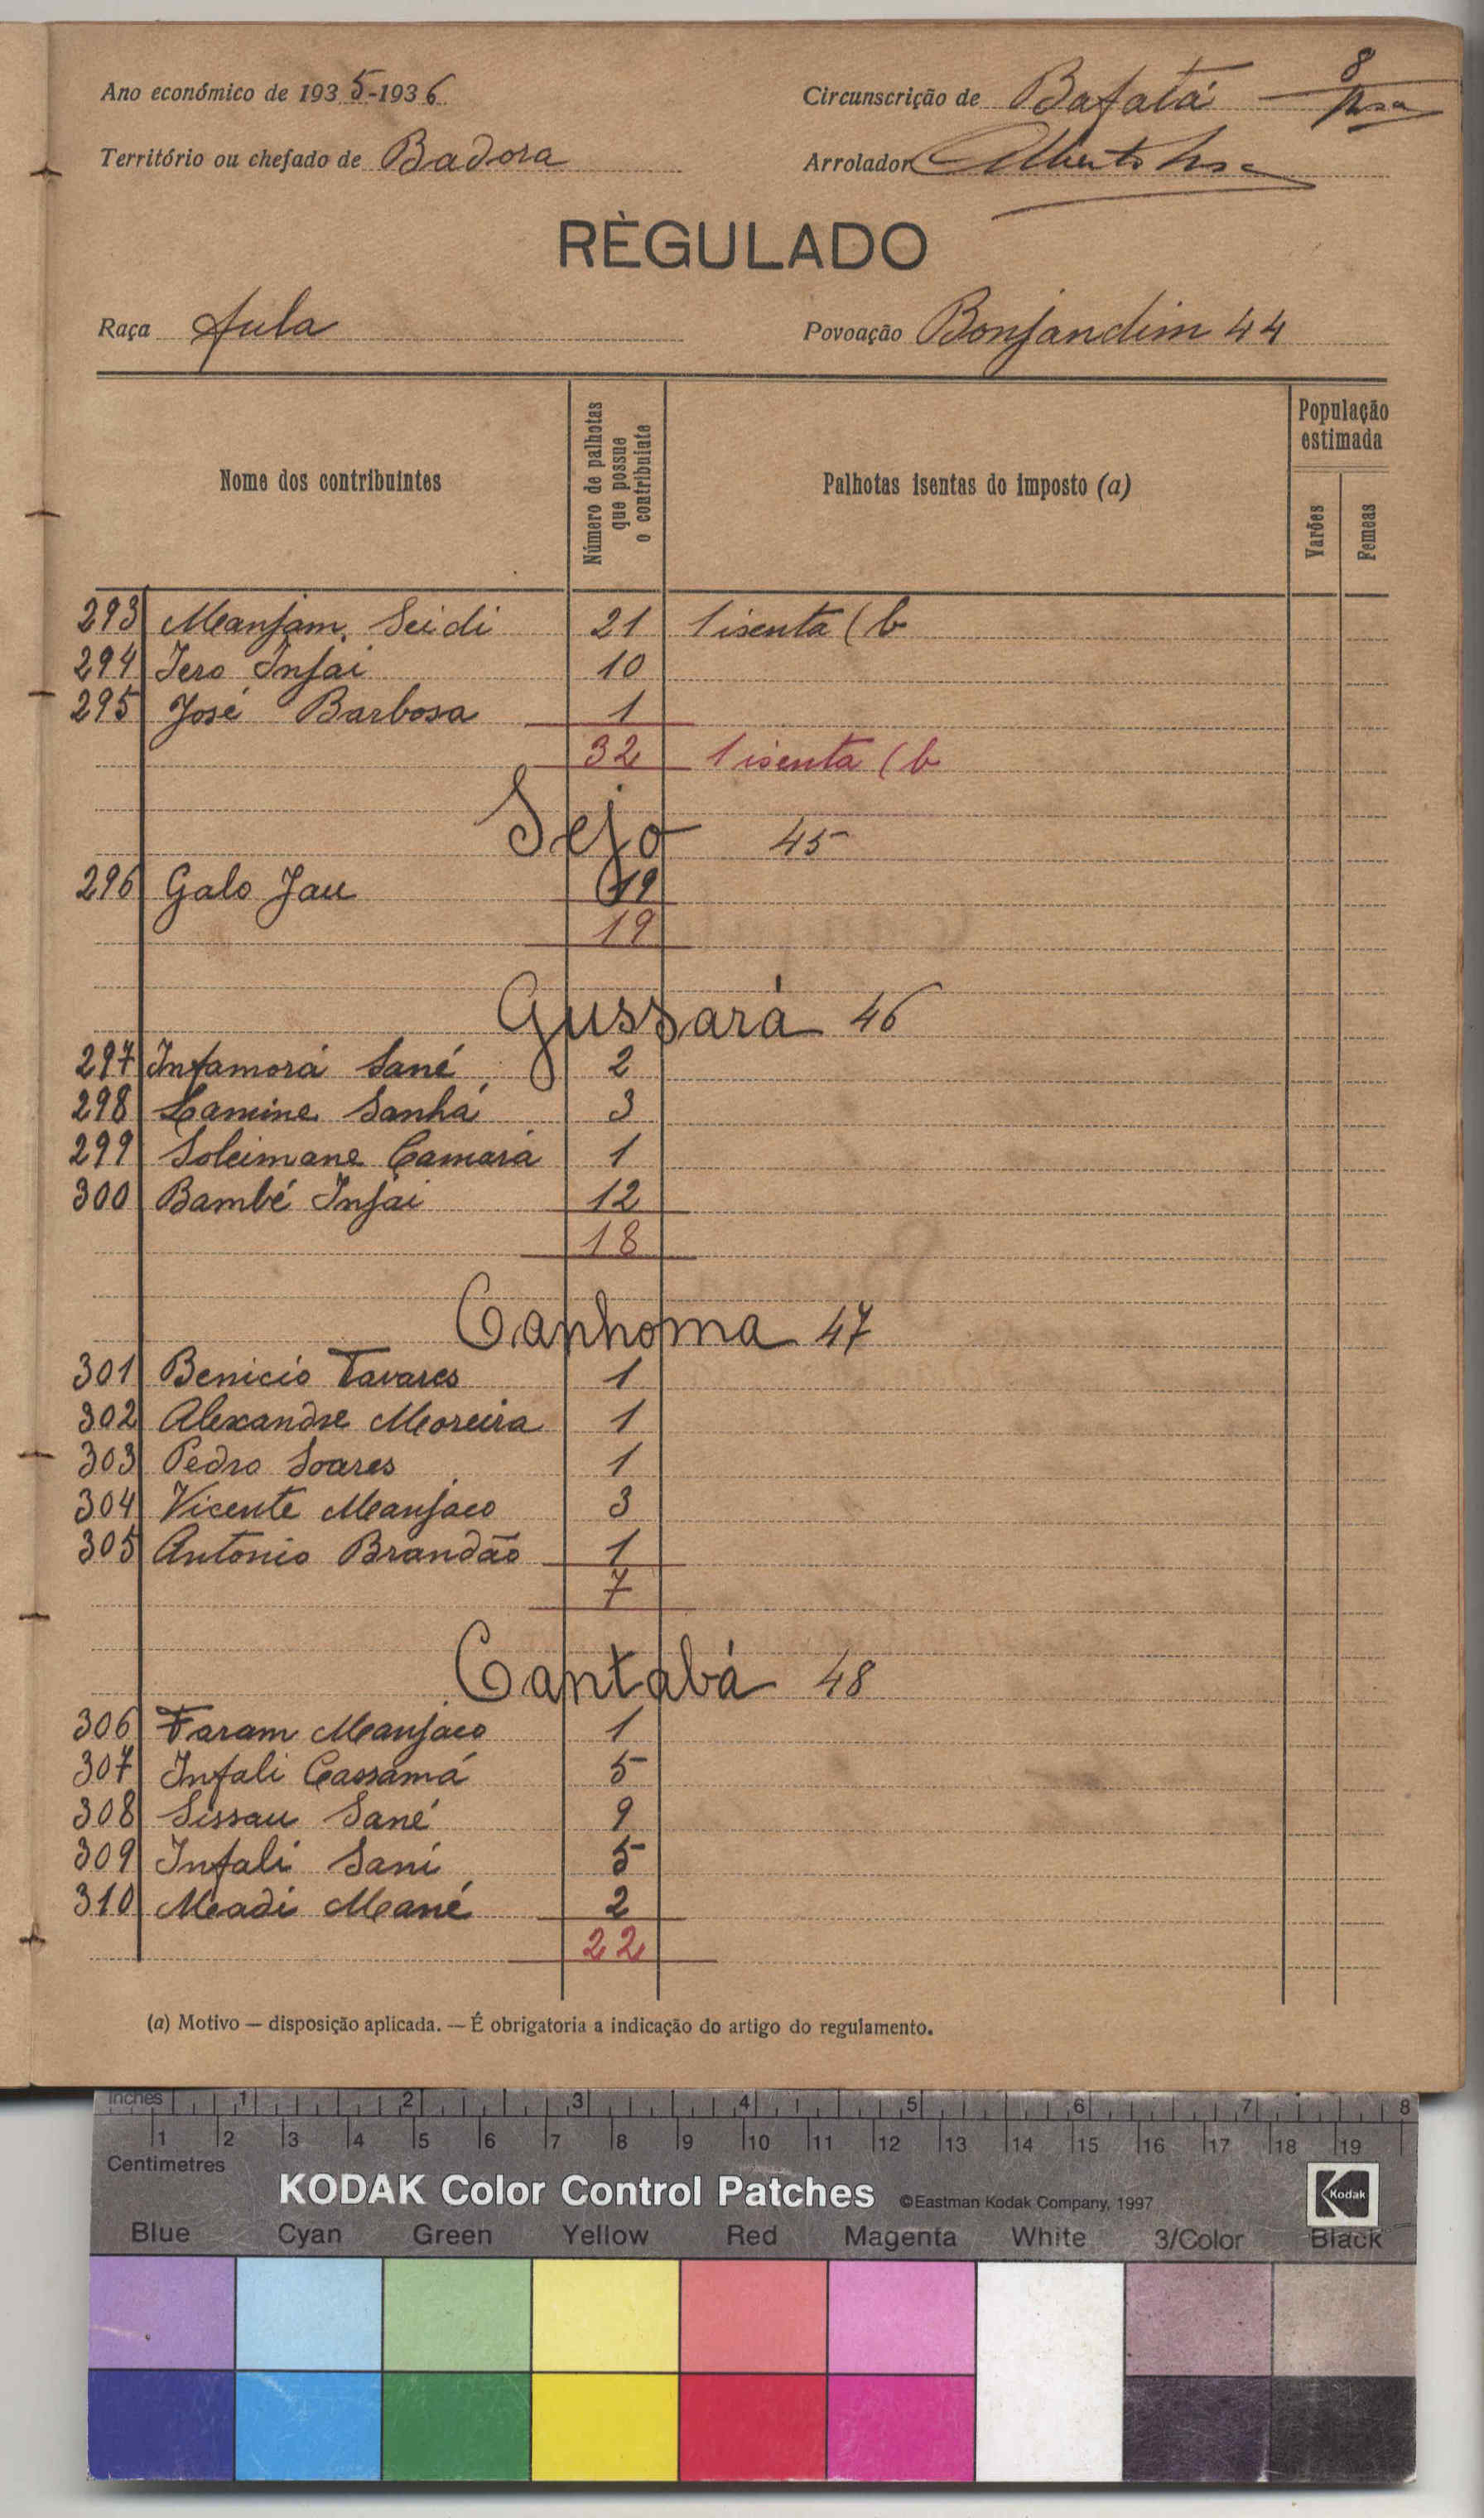 8
Ano económico de 1935-1936
Circunscrição de Bafatá
Território ou chefado de Badora
Arrolador Alberto
RÈGULADO
Raça fula
Povoação Bonjandim 44
Nome dos contribuintes
Número de palhotas que possue o contribuinte
Palhotas isentas do imposto (a)
População estimada
Varões
Femeas
293 Manjam Seidi 21 1 isenta (b
294 Iero Injai 10
295 José Barbosa 1
32 1 isenta (b
Sejo 45
296 Galo Jau 19
19
Gussará 46
297 Infamorá Sané 2
298 Lamine Sanhá 3
299 Soleimane Camará 1
300 Bambé Injai 12
18
Canhoma 47
301 Benicio Tavares 1
302 Alexandre Moreira 1
303 Pedro Soares 1
304 Vicente Manjaco 3
305 Antonio Brandão 1
7
Cantabá 48
306 Faram Manjaco 1
307 Infali Cassamá 5
308 Sissau Sané 9
309 Infali Sani 5
310 Meadi Mané 2
22
(a) Motivo — disposição aplicada. — É obrigatoria a indicação do artigo do regulamento.
Inches 1 2 3 4 5 6 7 8
1 2 3 4 5 6 7 8 9 10 11 12 13 14 15 16 17 18 19
Centimetres
KODAK Color Control Patches ©Eastman Kodak Company, 1997 Kodak
Blue Cyan Green Yellow Red Magenta White 3/Color Black